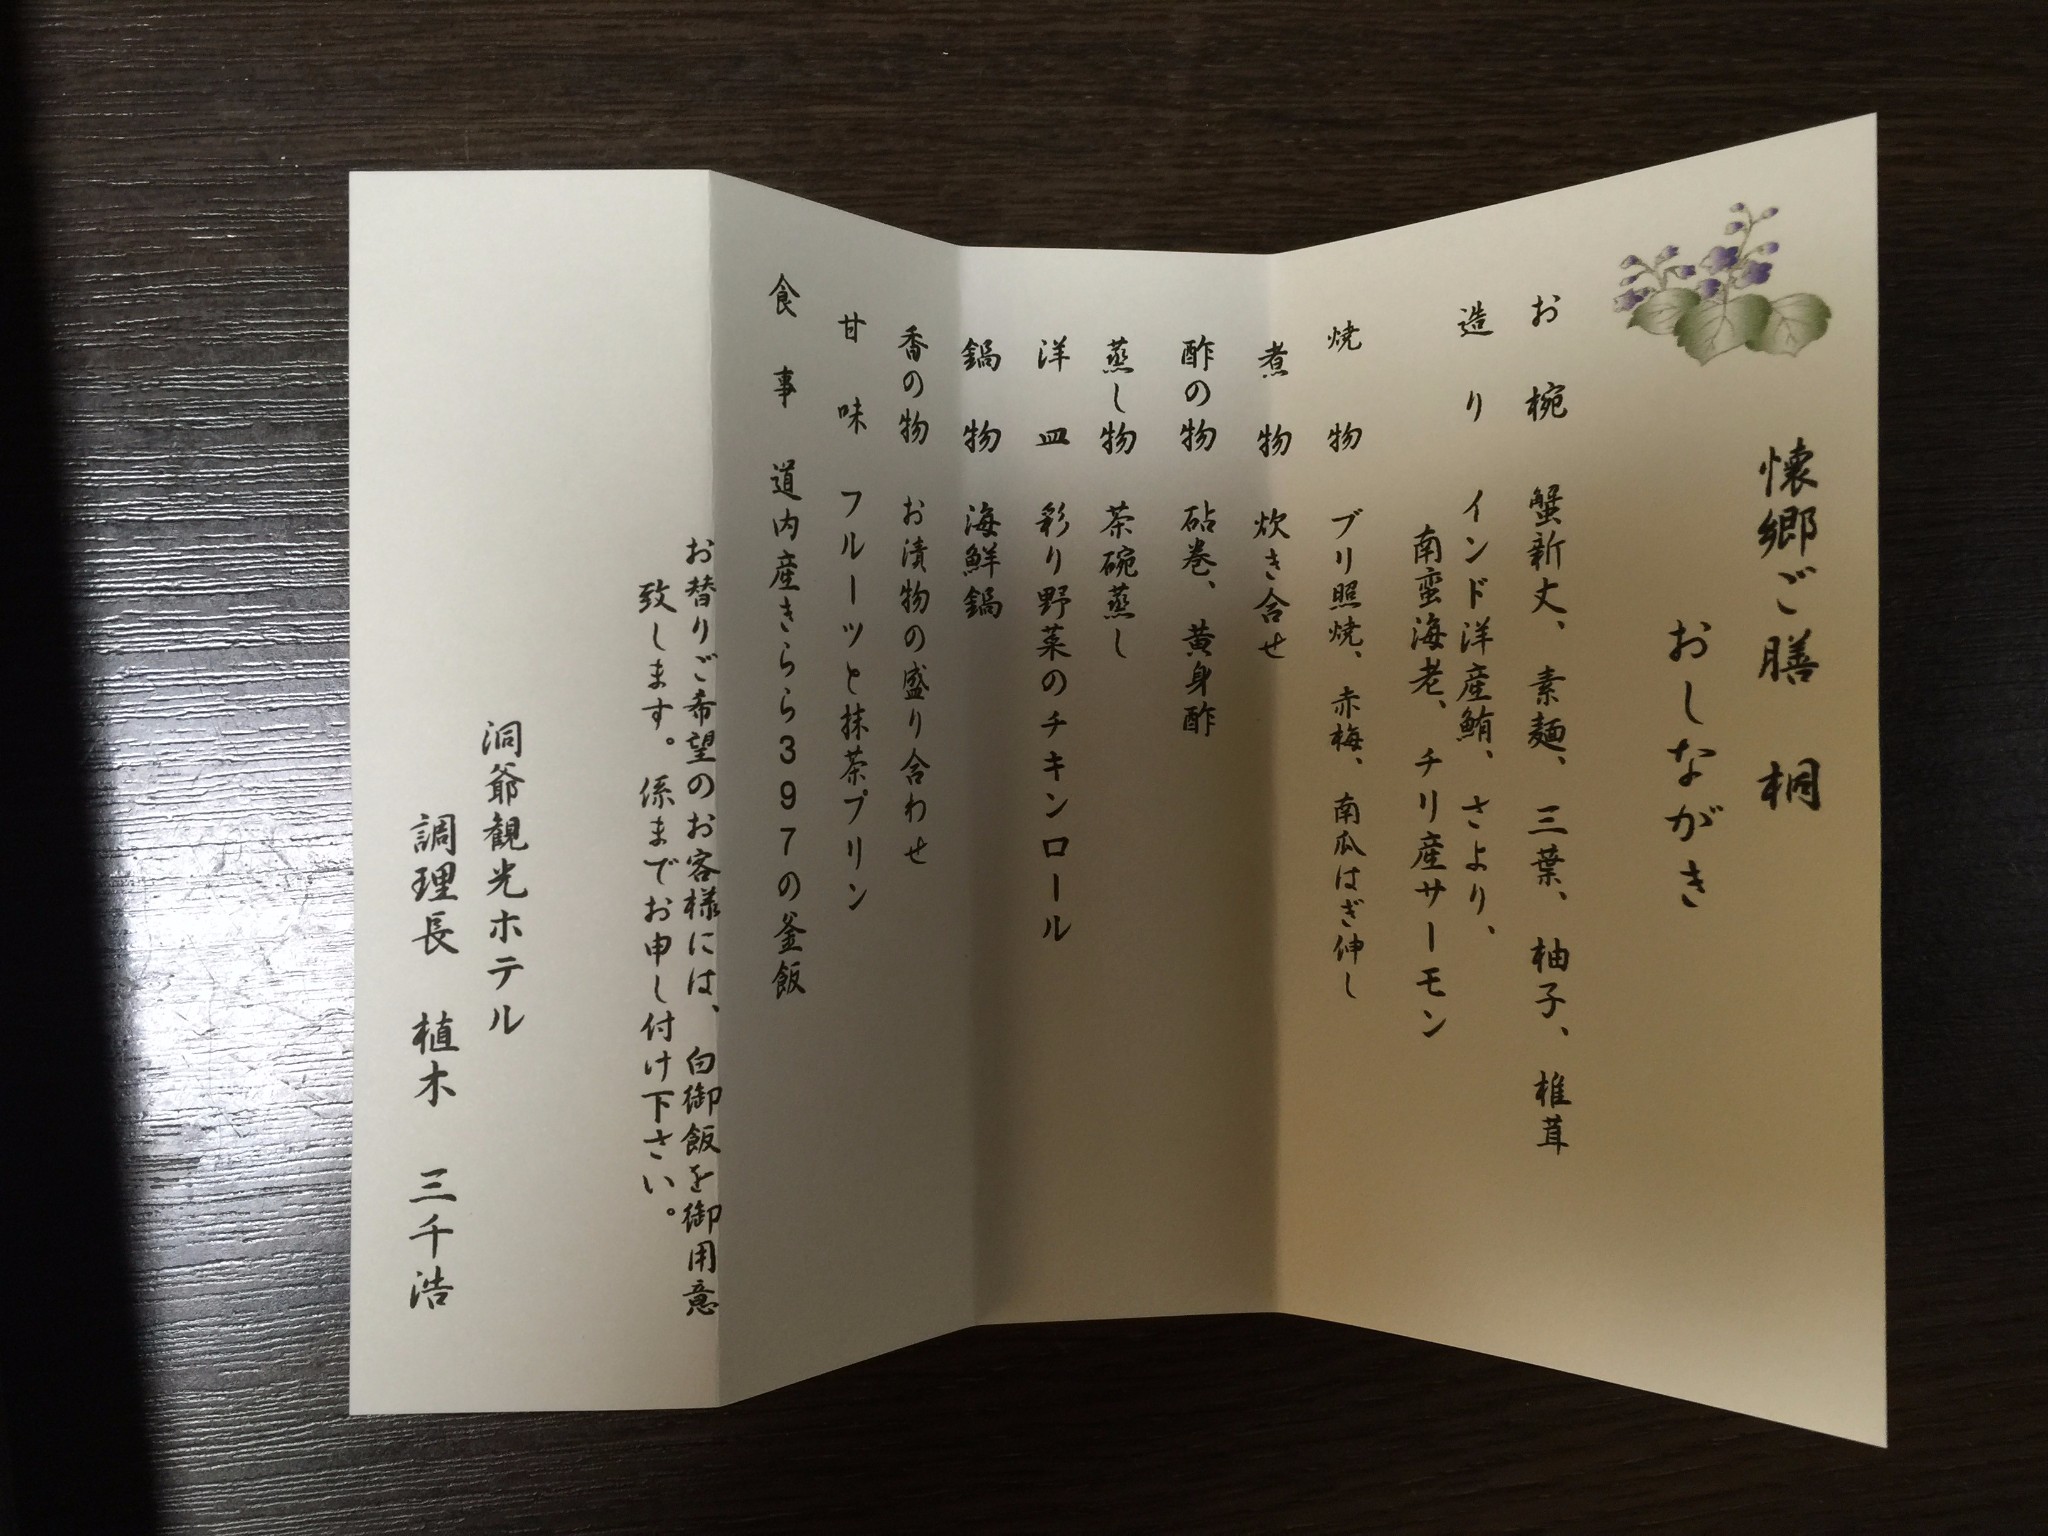 懐郷ご膳　桐
おしながき
お椀　蟹新丈、素麺、三葉、柚子、椎茸
造り　インド洋産鮪、さより、
南蛮海老、チリ産サーモン
焼物　ブリ照焼、赤梅、南瓜はぎ伸し
煮物　炊き合せ
酢の物　砧巻、黄身酢
蒸し物　茶碗蒸し
洋皿　彩り野菜のチキンロール
鍋物　海鮮鍋
香の物　お漬物の盛り合わせ
甘味　フルーツと抹茶プリン
食事　道内産きらら397の釜飯
お替りご希望のお客様には、白御飯を御用意
致します。係までお申し付け下さい。
洞爺観光ホテル
調理長　植木　三千浩